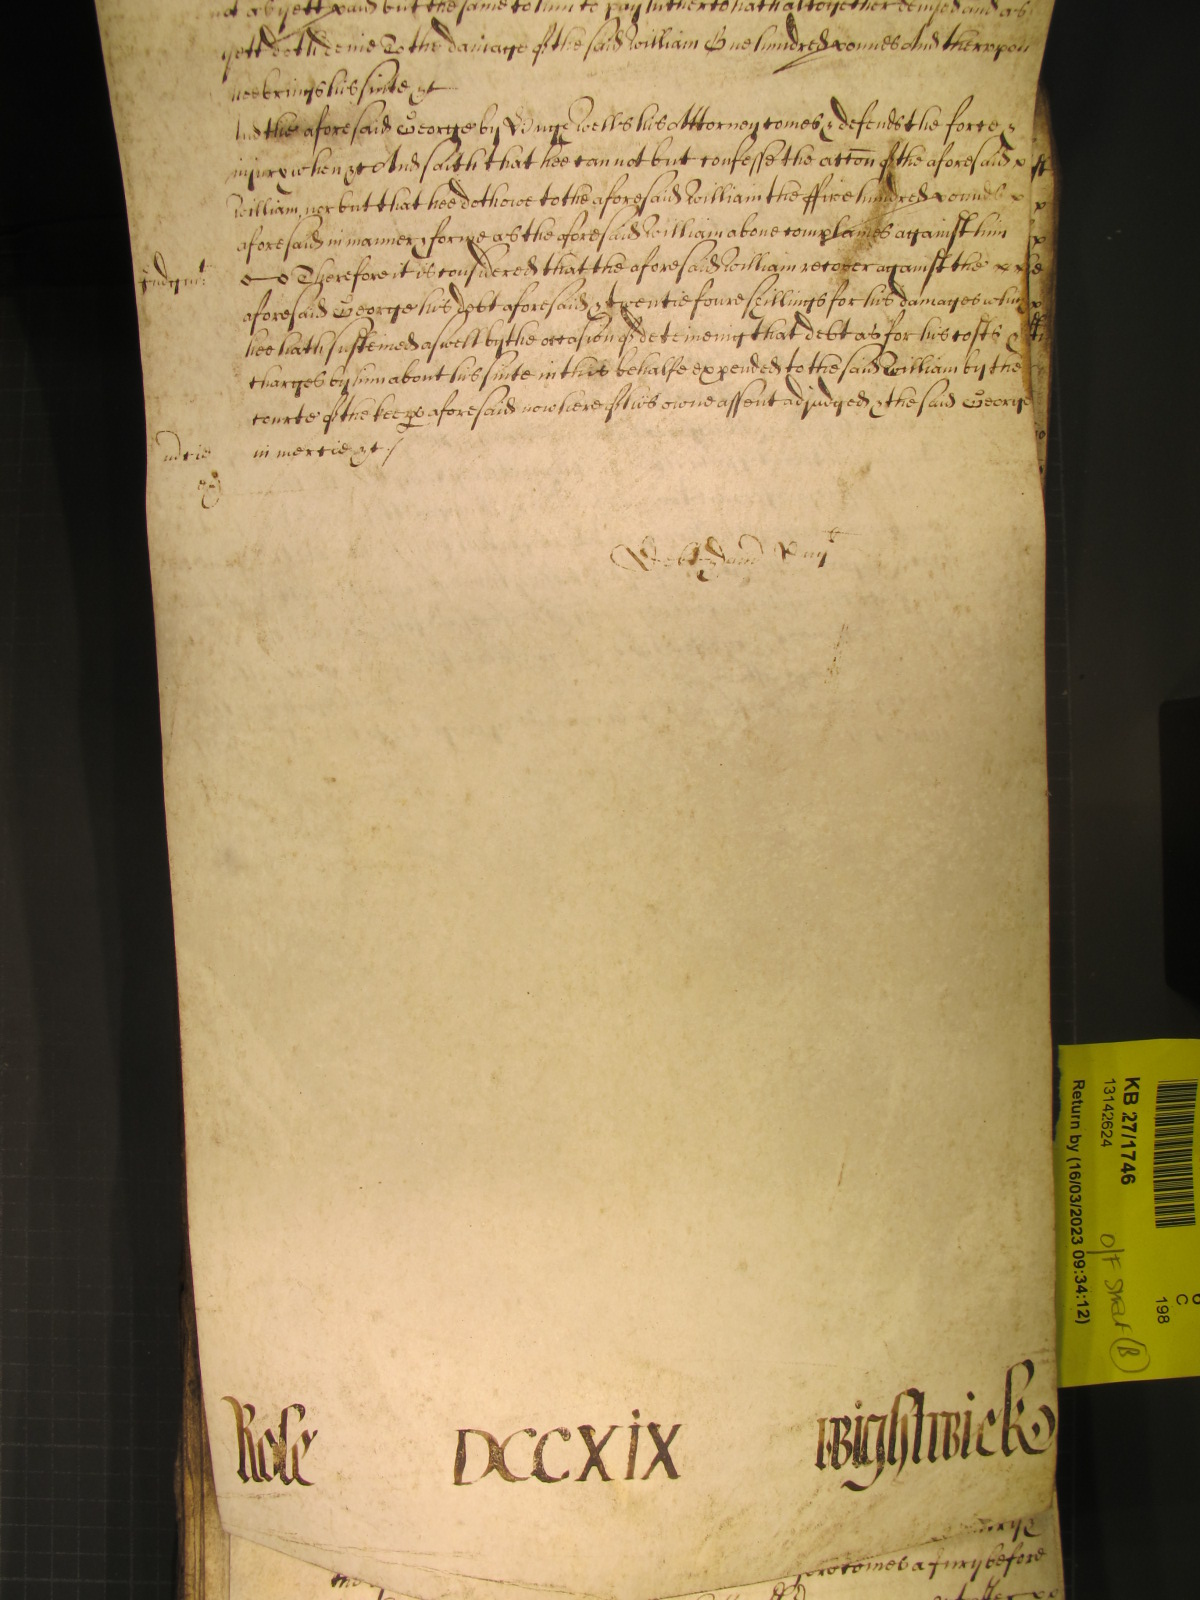 not as yett paid but the same to him to pay hitherto hath altogether denyed and as
yett doth denie To the damage of the said William One hundred pounds And therupon
hee brings his suite &c
And the aforesaid George by Wells his Attorney comes & defends the force &
injury when &c And saith that hee cannot but confesse the accon of the aforesaid
William nor but that hee doth owe to the aforesaid William the ffive hundred pounds
aforesaid in manner & forme as the aforesaid William above complaines against him
Judgmt: Therefore it is considered that the aforesaid William recover against the
aforesaid George his debt aforesaid & twentie foure shillings for his damages which
hee hath susteined aswell by the occasion of deteineing that debt as for his costs &
charges by him about his suite in this behalfe expended to the said William by the
courte of the keeps aforesaid now here of his owne assent adjudged & the said George
mercie in mercie &c /
Role DCCXIX Wightwick
comes a jury before
KB 27/1746
13142624
Return by (16/03/2023 09:34:12)
C
198